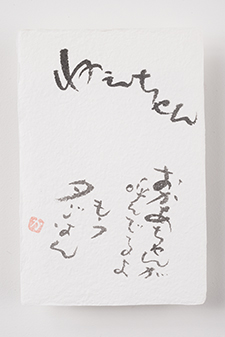 めえちゃん
おかあちゃんが
呼んでるよ
もう
夕ごはん